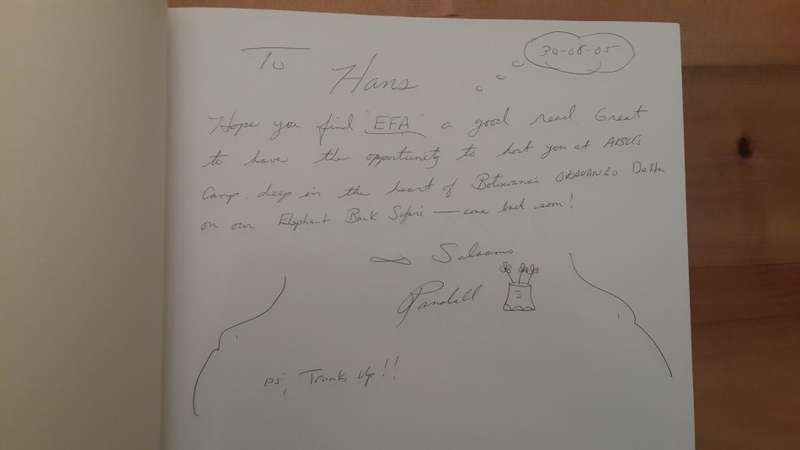 To
30-08-05
Hans
Hope you find "EFA" a good read. Great
to have the opportunity to host you at ABU's
Camp, deep in the heart of Botswana's OKAVANGO Delta
on our Elephant Back Safari — come back soon!
Salaams
Randall
PS, Trunks Up!!